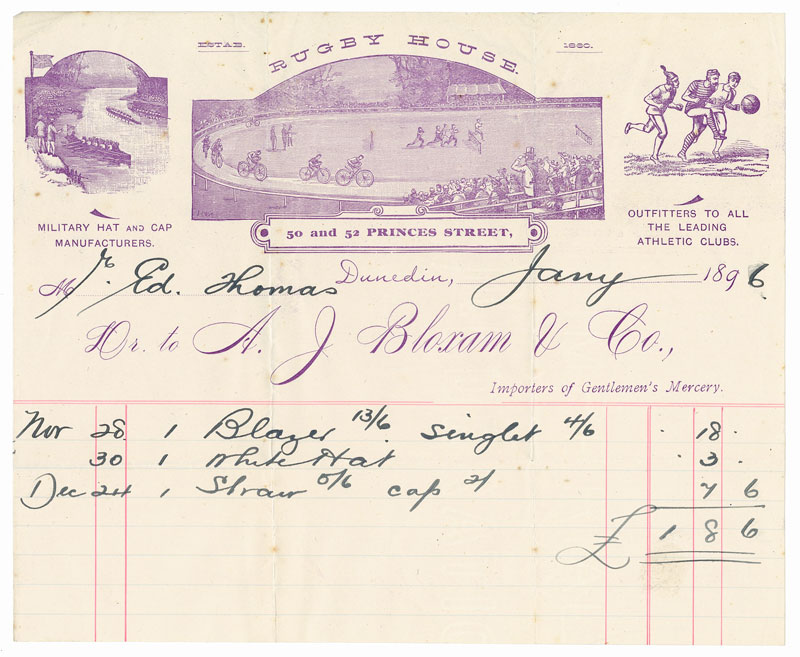 ESTAB. RUGBY HOUSE. 1880.
MILITARY HAT AND CAP
MANUFACTURERS.
50 and 52 PRINCES STREET,
OUTFITTERS TO ALL
THE LEADING
ATHLETIC CLUBS.
Mr. Ed. Thomas Dunedin, Jany 1896
Dr. to A. J Bloxam & Co.,
Importers of Gentlemen's Mercery.
Nov 28 1 Blazer 13/6 Singlet 4/6 18
30 1 White Hat 3
Dec 24 1 Straw 5/6 cap 2/ 7 6
£ 1 8 6